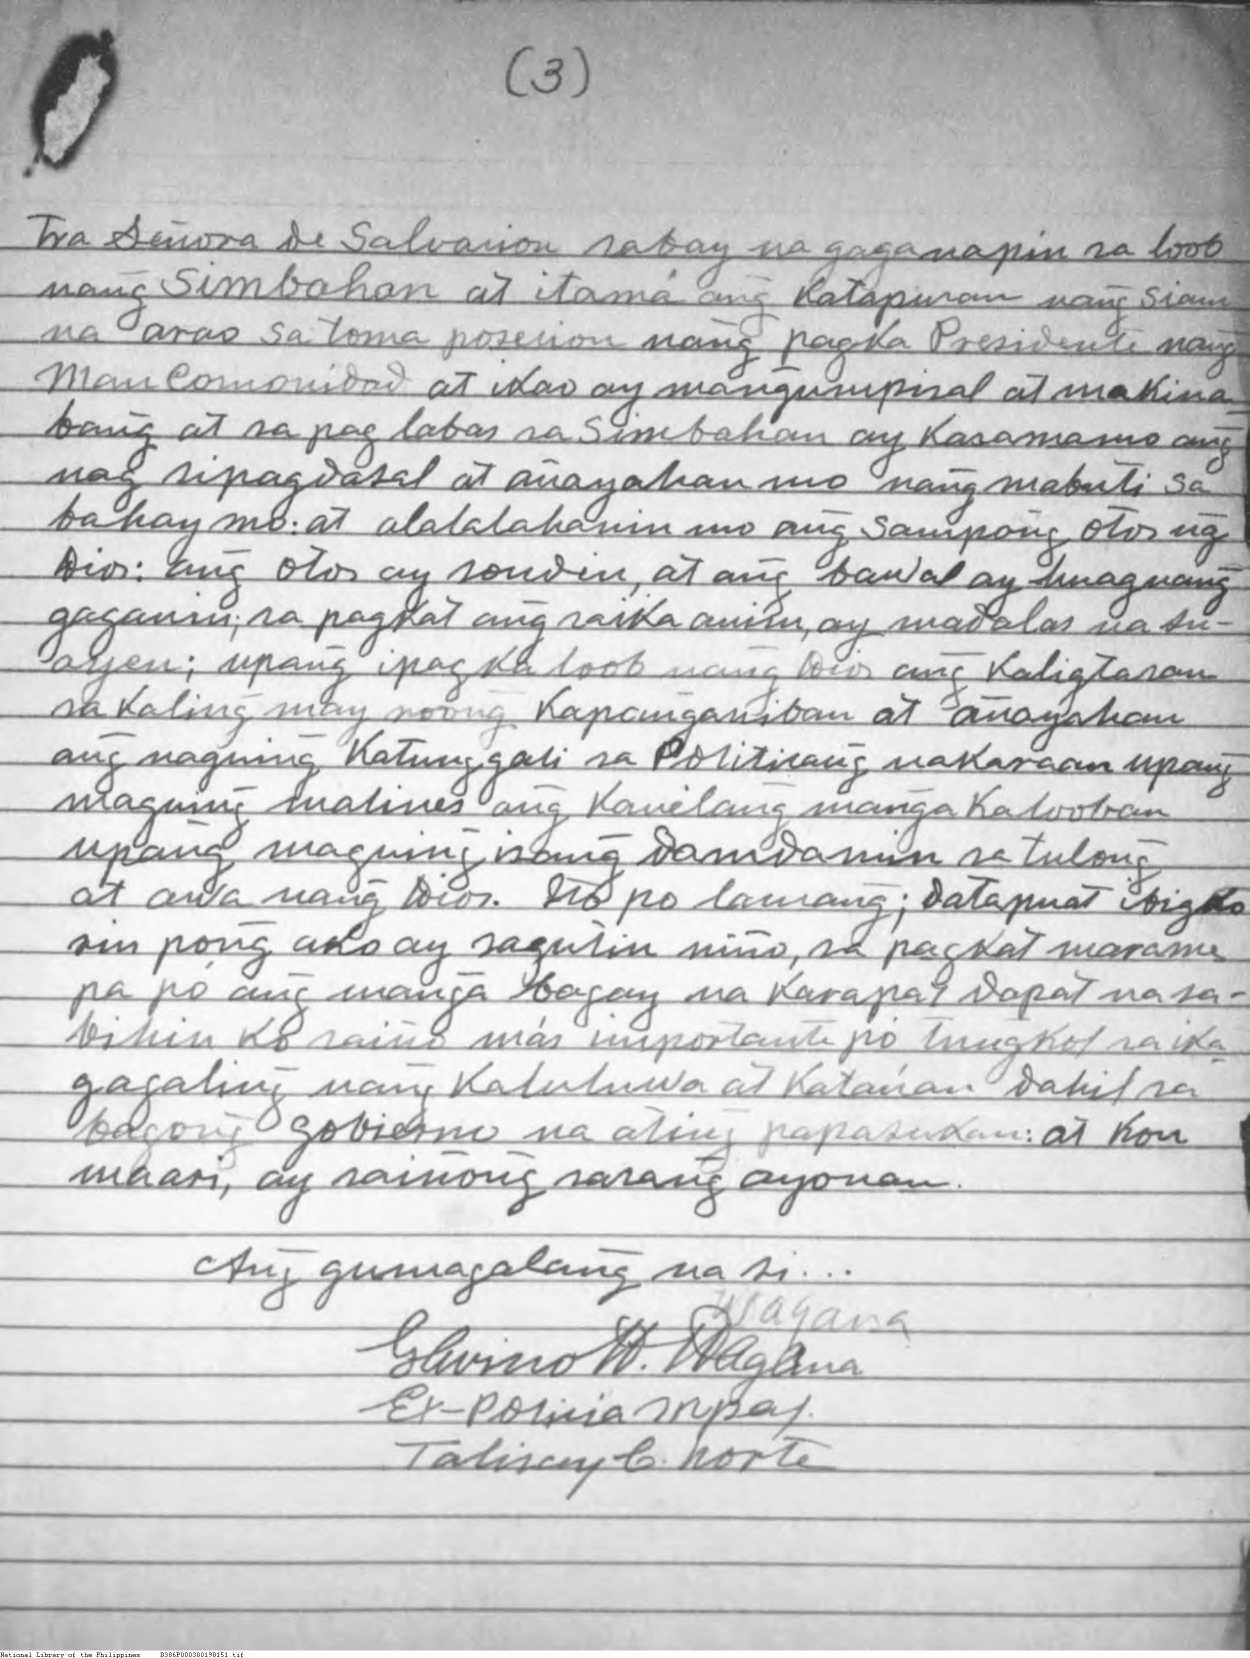 (3)
Tra Señora de Salvacion sabay na gaganapin sa loob
nang Simbahan at itamá ang Katapusan nang Siam
na arao sa toma posecion nang pagka Presidente nang
Man Comonidad at ikao ay mangumpisal at makina-
bang at sa pag labas sa Simbahan ay Kasamamo ang
nag sipagdasal at anayahan mo nang mabuti sa
bahay mo: at alalalahanin mo ang Sampong otos ng
Dios: ang otos ay sondin, at ang bawal ay huag nang
gaganin; sa pagkat ang saika anim, ay madalas na su-
ayen; upang ipag Ka loob nang Dios ang Kaligtasan
sa Kaling may roong Kapanganiban at anayahan
ang naguing Katunggali sa Politicang nakaraan upang
maguing malines ang Kanélang manga Kalooban
upang maguing isang damdamin sa tulong
at awa nang Dios. Ito po lamang; datapuat ibig ko
rin pong ako ay sagutin niño, sa pagkat marame
pa pó ang manga bagay na Karapat dapat na sa-
bihin Kó saiño más importante pó tungkol sa ika
gagaling nang Kaluluwa at Katauan dahil sa
bagong gobierno na ating papasukan: at Kon
maari, ay sainong sarang ayonan.
Ang gumagalang na si...
Wagana
W. Wagana
Ex-Policia Mpal.
Talisay C. Norte
National Library of the Philippines D386P000300190151.tif